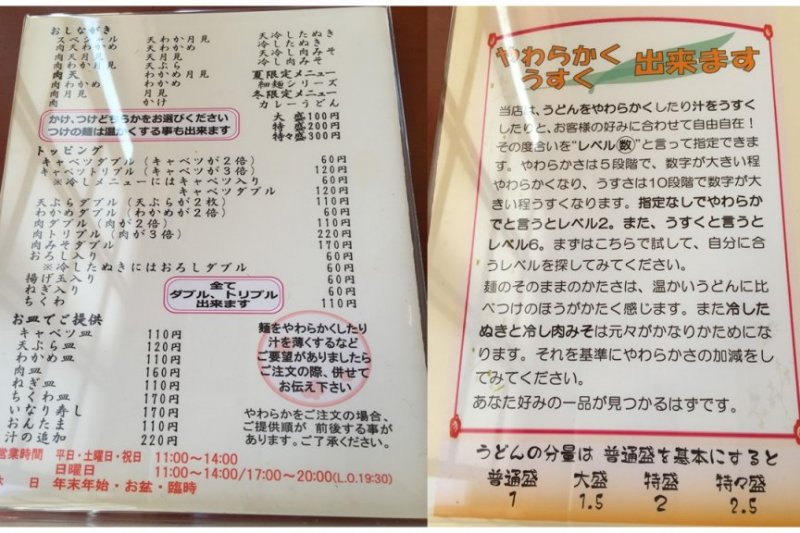 おしながき
スペシャル 天わか月見 天冷したぬき
肉天わかめ 天わかめ 冷したぬき
肉天月見 天月見 天冷し肉みそ
肉わか月見 天ぷら 冷し肉みそ
肉天 わか月見 夏限定メニュー
肉わかめ わかめ 細麺シリーズ
肉月見 月見 冬限定メニュー
肉 かけ カレーうどん
かけ、つけどちらかをお選びください
つけの麺は温かくする事も出来ます
大盛100円
特盛200円
特々盛300円
トッピング
キャベツダブル(キャベツが2倍) 60円
キャベツトリプル(キャベツが3倍) 120円
※冷しメニューにはキャベツ入り 60円
キャベツダブル 60円
天ぷらダブル(天ぷらが2枚) 110円
わかめダブル(わかめが2倍) 60円
肉ダブル(肉が2倍) 110円
肉トリプル(肉が3倍) 220円
肉みそダブル 170円
おろし入り 60円
※冷したぬきにはおろしダブル 60円
揚げ玉入り 60円
ねぎ入り 60円
ちくわ 110円
全て
ダブル、トリプル
出来ます
お皿でご提供
キャベツ皿 110円
天ぷら皿 120円
わかめ皿 110円
肉皿 160円
ねぎ皿 110円
ちくわ皿 170円
いなり寿し 170円
おんたま 110円
汁の追加 220円
麺をやわらかくしたり
汁を薄くするなど
ご要望がありましたら
ご注文の際、併せて
お伝え下さい
やわらかをご注文の場合、
ご提供順が 前後する事が
あります。ご了承ください。
営業時間 平日・土曜日・祝日 11:00〜14:00
日曜日 11:00〜14:00/17:00〜20:00(L.O.19:30)
休 日 年末年始・お盆・臨時
やわらかく
うすく 出来ます
当店は、うどんをやわらかくしたり汁をうすく
したりと、お客様の好みに合わせて自由自在!
その度合いを"レベル数"と言って指定できま
す。やわらかさは5段階で、数字が大きい程
やわらかくなり、うすさは10段階で数字が大
きい程うすくなります。指定なしでやわらか
でと言うとレベル2。また、うすくと言うと
レベル6。まずはこちらで試して、自分に合
うレベルを探してみてください。
麺のそのままのかたさは、温かいうどんに比
べつけのほうがかたく感じます。また冷した
ぬきと冷し肉みそは元々がかなりかためにな
ります。それを基準にやわらかさの加減をし
てみてください。
あなた好みの一品が見つかるはずです。
うどんの分量は 普通盛を基本にすると
普通盛 大盛 特盛 特々盛
1 1.5 2 2.5